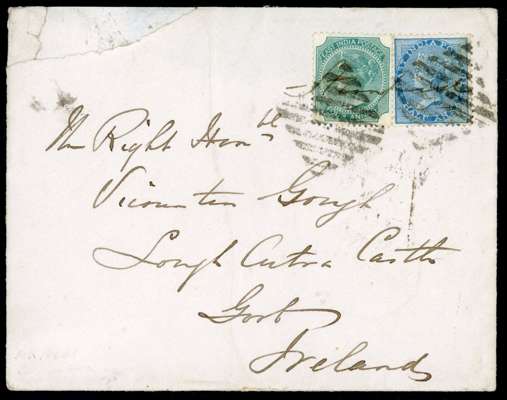 EAST INDIA POSTAGE
EAST INDIA
The Right Honble
Viscountess Gough
Lough Cutra Castle
Gort
Ireland